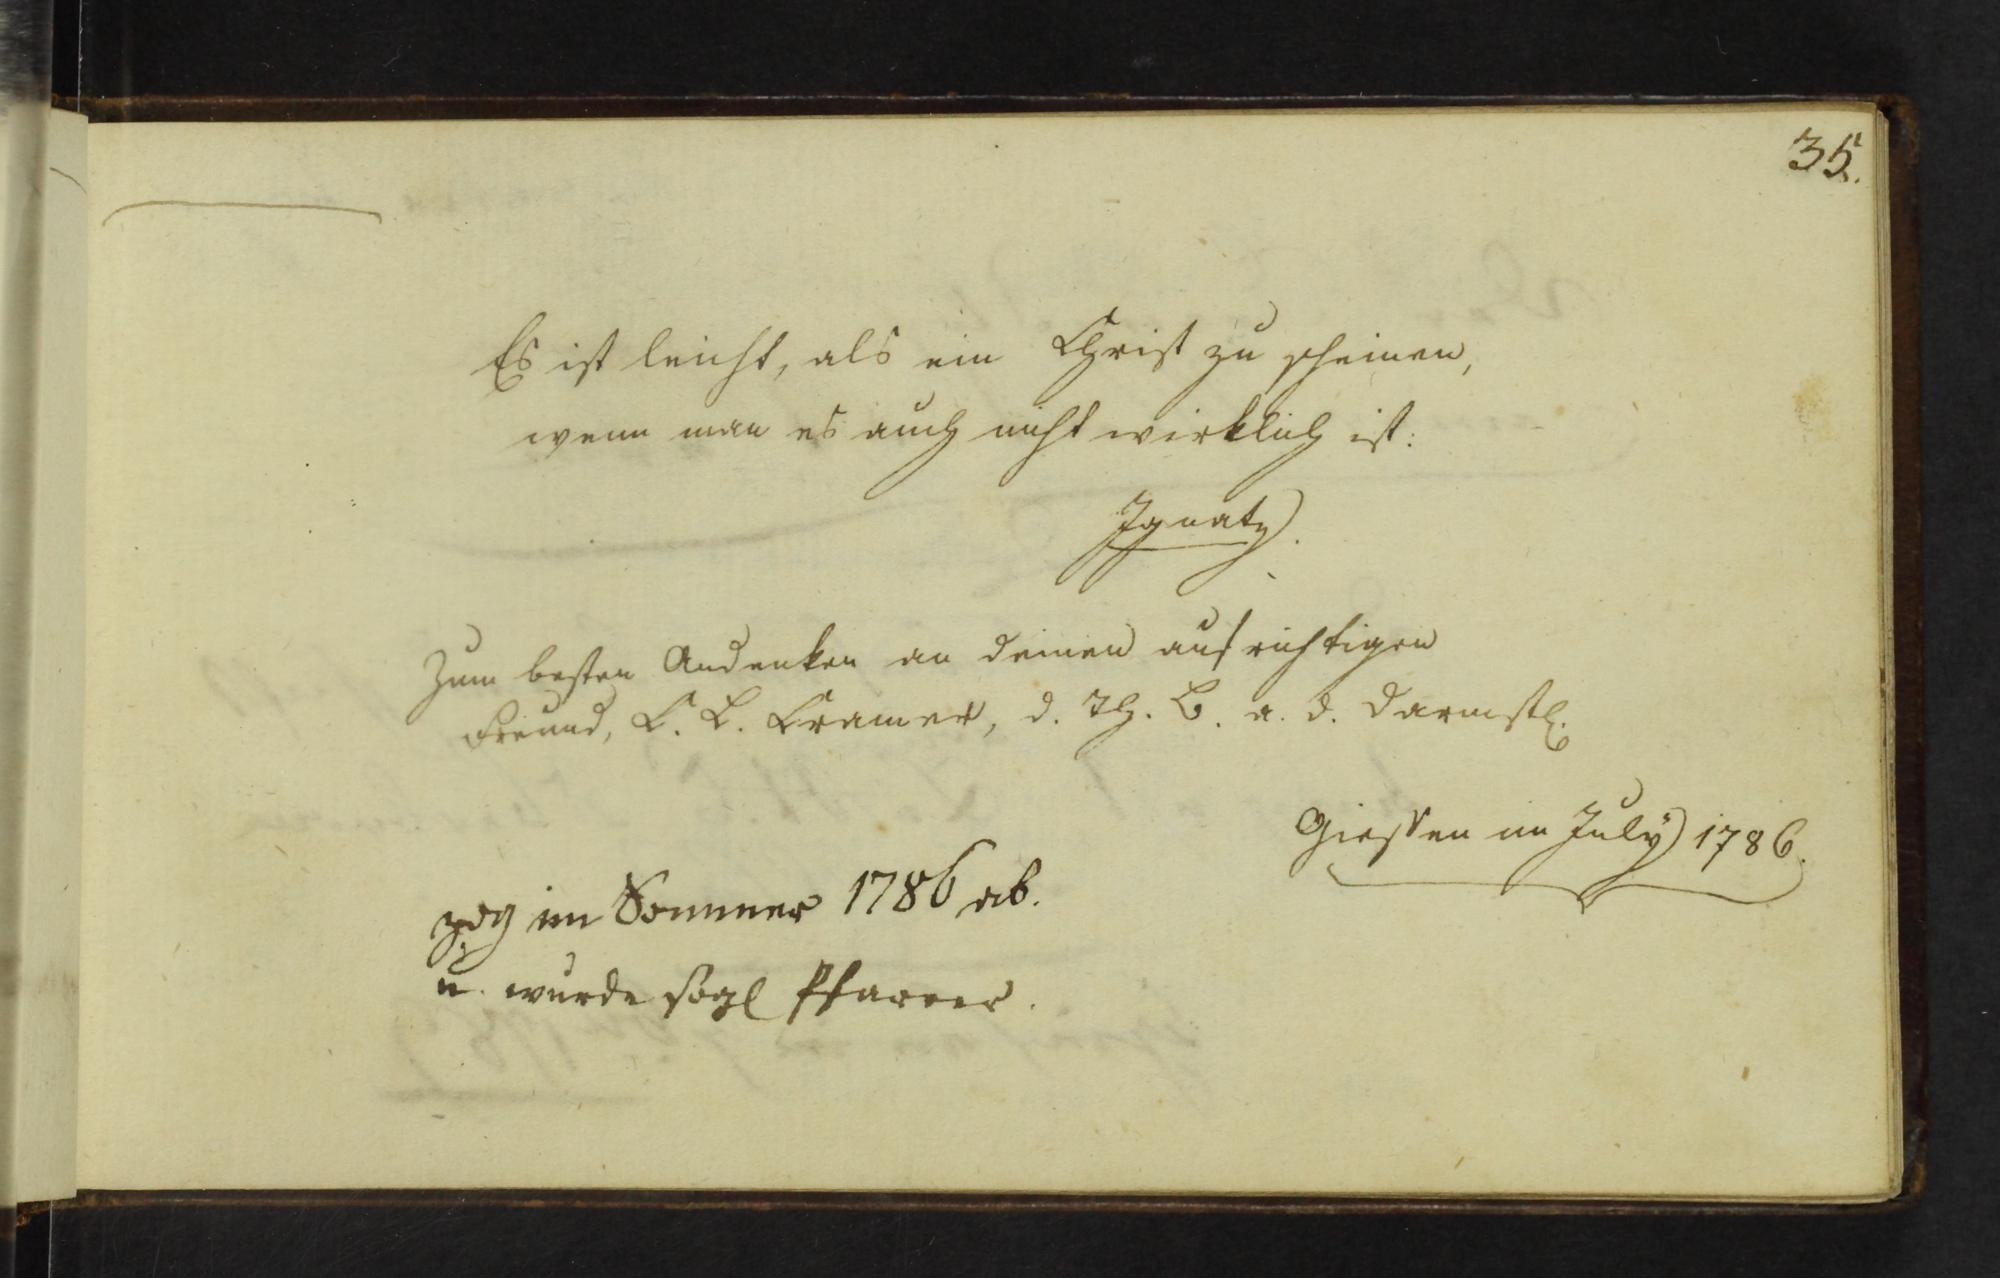 35.
Es ist leicht, als ein Christ zu scheinen,
wenn man es auch nicht wirklich ist.
Ignatz.
Zum besten Andenken an deinen aufrichtigen
Freund, C. L. Cramer, d. Th. B. a. d. Darmst.
Giessen im July 1786.
zog im Sommer 1786 ab.
u. wurde sogl Pfarrer.